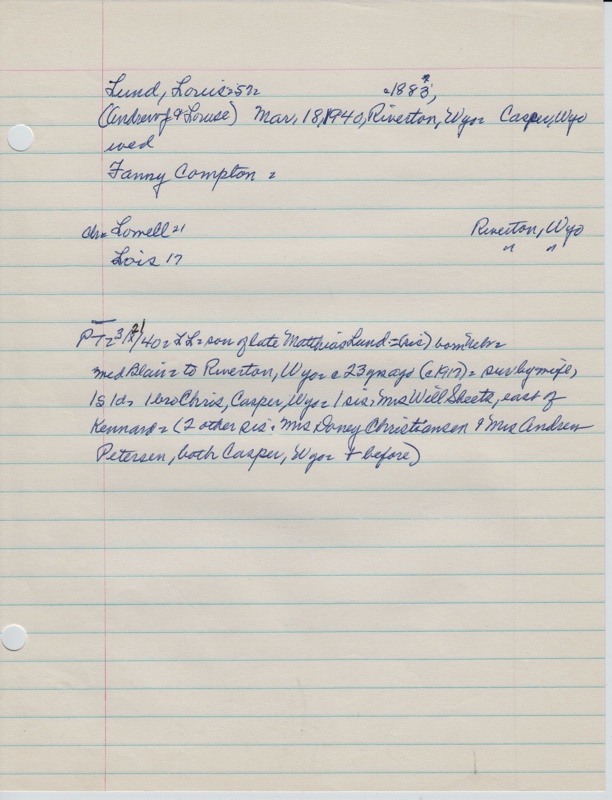 Lund, Louis = 57 = c1883,
(Andrew J & Louise) Mar. 18, 1940, Riverton, Wyo = Casper, Wyo
wed
Fanny Compton =
ch = Lowell 21 Riverton, Wyo
Lois 17 " "
PT = 3/21/40 = LL = son of late Matthias Lund = (sic) born Nebr =
med Blair = to Riverton, Wyo = c 23 yrs ago (c1917) = surv by wife,
1s 1d, 1 bro Chris, Casper, Wyo = 1 sis, Mrs Will Sheets, east of
Kennard = (2 other sis, Mrs Doney Christiansen & Mrs Andrew
Petersen, both Casper, Wyo = + before)